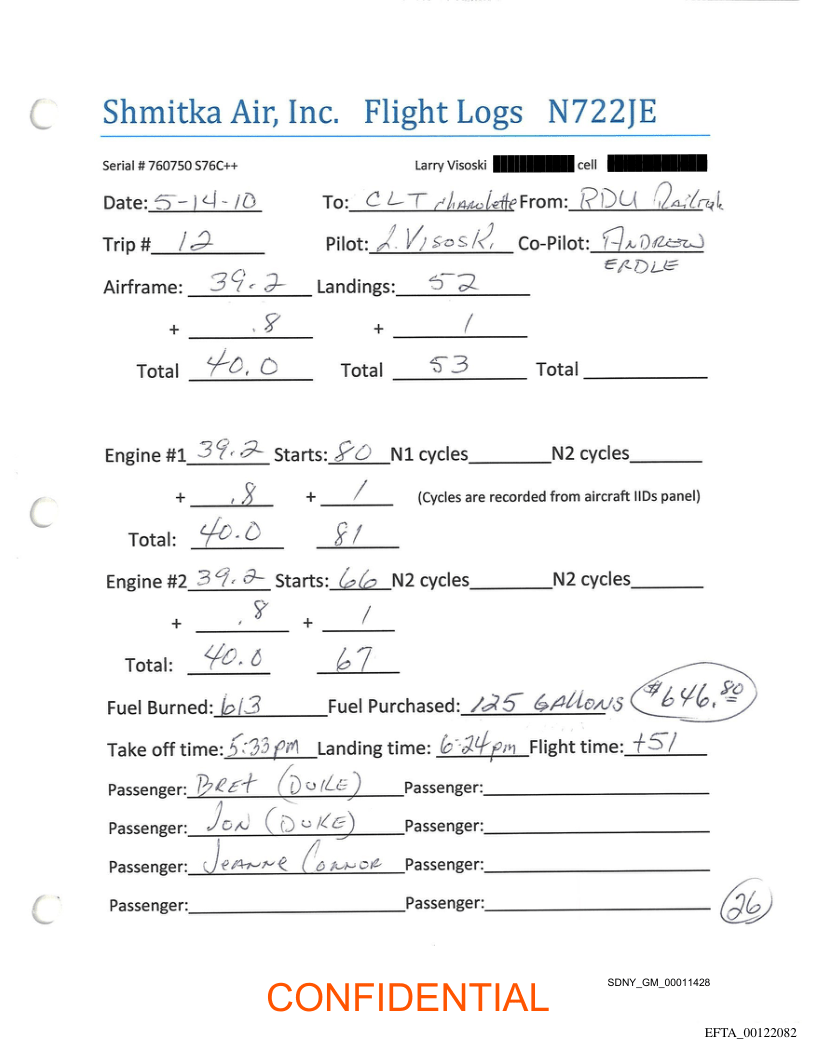 Shmitka Air, Inc. Flight Logs N722JE
Serial # 760750 S76C++ Larry Visoski cell
Date: 5-14-10 To: CLT charolette From: RDU
Trip # 12 Pilot: L. Visoski Co-Pilot: ANDREW
ERDLE
Airframe: 39.2 Landings: 52
+ .8 + 1
Total 40.0 Total 53 Total
Engine #1 39.2 Starts: 80 N1 cycles N2 cycles
+ .8 + 1 (Cycles are recorded from aircraft IIDs panel)
Total: 40.0 81
Engine #2 39.2 Starts: 66 N2 cycles N2 cycles
+ .8 + 1
Total: 40.0 67
Fuel Burned: 613 Fuel Purchased: 125 GALLONS $646.80
Take off time: 5:33 pm Landing time: 6:24 pm Flight time: +51
Passenger: BRET (DUKE) Passenger:
Passenger: JON (DUKE) Passenger:
Passenger: Jeanne Connor Passenger:
Passenger: Passenger:
26
SDNY_GM_00011428
CONFIDENTIAL
EFTA_00122082